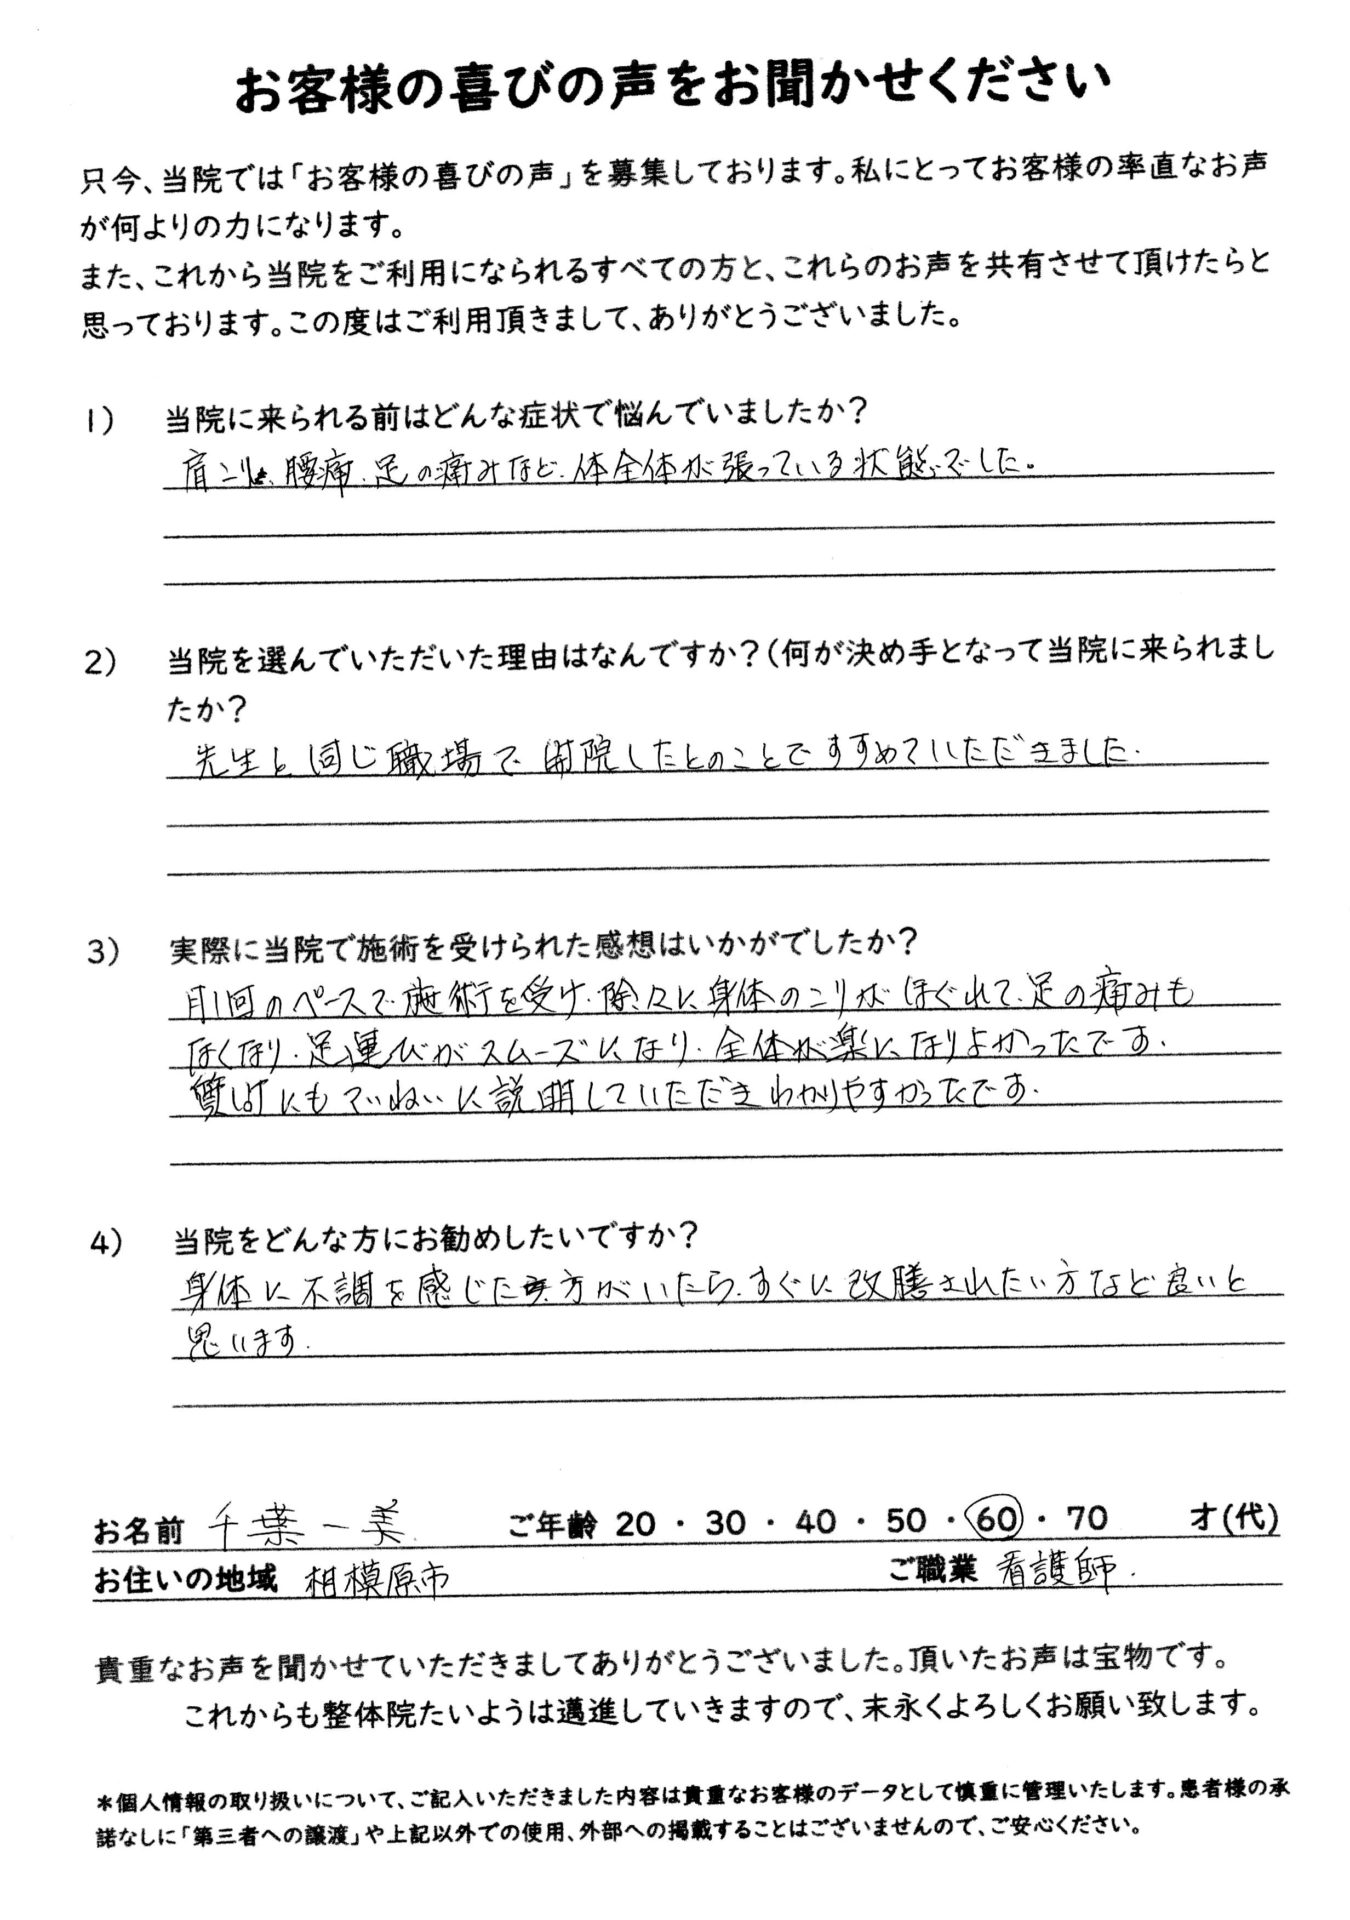 お客様の喜びの声をお聞かせください
只今、当院では「お客様の喜びの声」を募集しております。私にとってお客様の率直なお声
が何よりの力になります。
また、これから当院をご利用になられるすべての方と、これらのお声を共有させて頂けたらと
思っております。この度はご利用頂きまして、ありがとうございました。
1) 当院に来られる前はどんな症状で悩んでいましたか?
肩こり、腰痛、足の痛みなど、体全体が張っている状態でした。
2) 当院を選んでいただいた理由はなんですか?(何が決め手となって当院に来られまし
たか?
先生と同じ職場で開院したとのことですすめていただきました.
3) 実際に当院で施術を受けられた感想はいかがでしたか?
月1回のペースで施術を受け、除々に身体のこりがほぐれて、足の痛みも
なくなり、足の運びがスムーズになり、全体が楽になりよかったです.
質問にもていねいに説明していただきわかりやすかったです.
4) 当院をどんな方にお勧めしたいですか?
身体に不調を感じた方がいたら、すぐに改善されたい方など良いと
思います.
お名前 千葉一美 ご年齢 20・30・40・50・60・70 才(代)
お住いの地域 相模原市 ご職業 看護師.
貴重なお声を聞かせていただきましてありがとうございました。頂いたお声は宝物です。
これからも整体院たいようは邁進していきますので、末永くよろしくお願い致します。
*個人情報の取り扱いについて、ご記入いただきました内容は貴重なお客様のデータとして慎重に管理いたします。患者様の承
諾なしに「第三者への譲渡」や上記以外での使用、外部への掲載することはございませんので、ご安心ください。